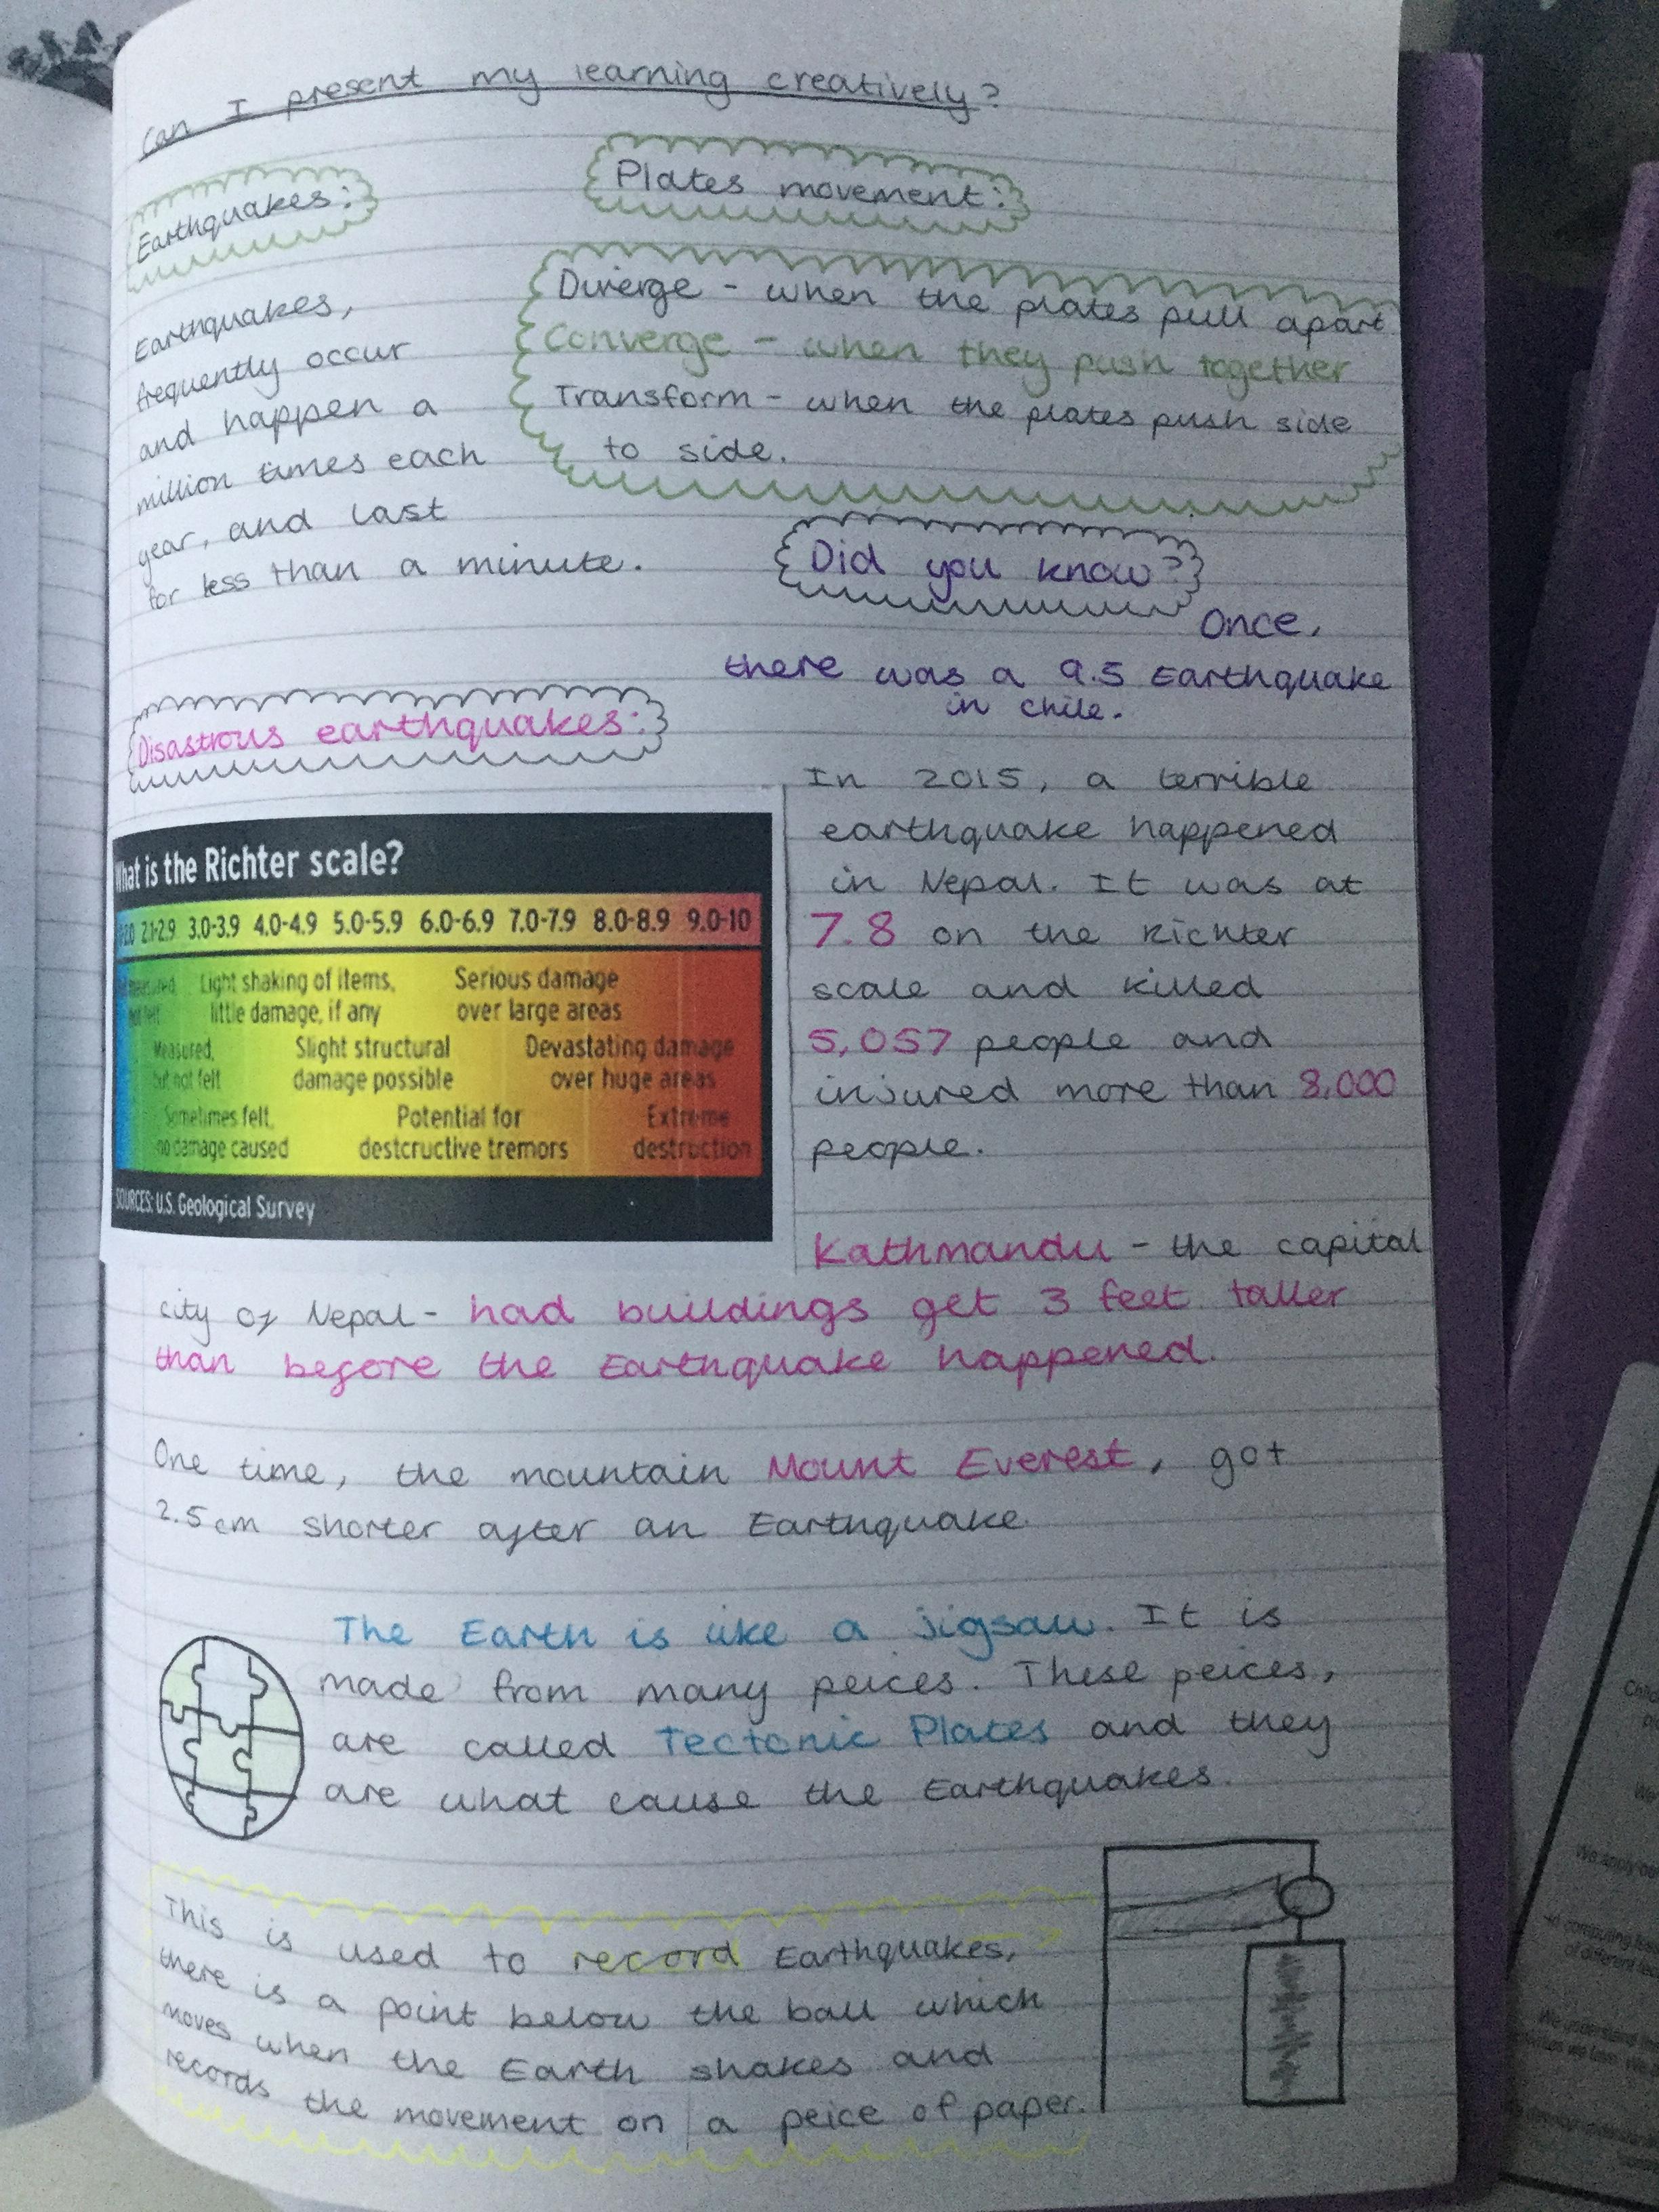 Can I present my learning creatively?
Earthquakes:
Earthquakes,
frequently occur
and happen a
million times each
year, and last
for less than a minute.
Plates movement:
Diverge - when the plates pull apart
Converge - when they push together
Transform - when the plates push side
to side.
Did you know?
Once,
there was a 9.5 Earthquake
in chile.
Disastrous earthquakes:
What is the Richter scale?
2.1-2.9 3.0-3.9 4.0-4.9 5.0-5.9 6.0-6.9 7.0-7.9 8.0-8.9 9.0-10
Light shaking of items,
little damage, if any
Serious damage
over large areas
Measured,
but not felt
Slight structural
damage possible
Devastating damage
over huge areas
Sometimes felt,
no damage caused
Potential for
destcructive tremors
Extreme
destruction
SOURCES: U.S. Geological Survey
In 2015, a terrible
earthquake happened
in Nepal. It was at
7.8 on the Richter
scale and killed
5,057 people and
injured more than 8,000
people.
Kathmandu - the capital
city of Nepal - had buildings get 3 feet taller
than before the Earthquake happened.
One time, the mountain Mount Everest, got
2.5cm shorter after an Earthquake.
The Earth is like a jigsaw. It is
made from many peices. These peices,
are called Tectonic Plates and they
are what cause the Earthquakes.
This is used to record Earthquakes,
there is a point below the ball which
moves when the Earth shakes and
records the movement on a peice of paper.